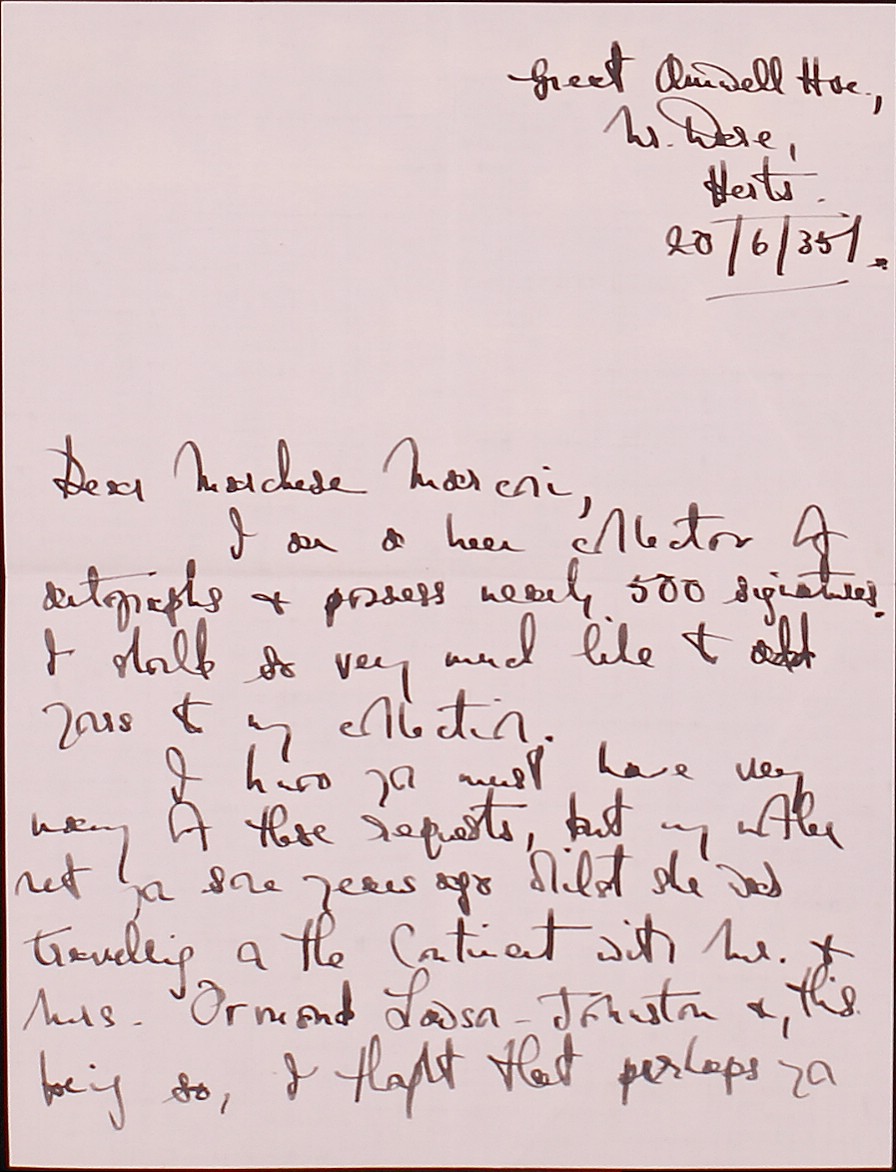 Great Amwell Hse.,
Nr. Ware,
Herts.
20/6/35.
Dear Marchese Marconi,
I am a keen collector of
autographs & possess nearly 500 signatures.
I should so very much like to add
yours to my collection.
I know you must have very
many of these requests, but my mother
met you some years ago whilst she was
travelling on the Continent with Mr. &
Mrs. Ormond Lawson-Johnston &, this
being so, I thought that perhaps you